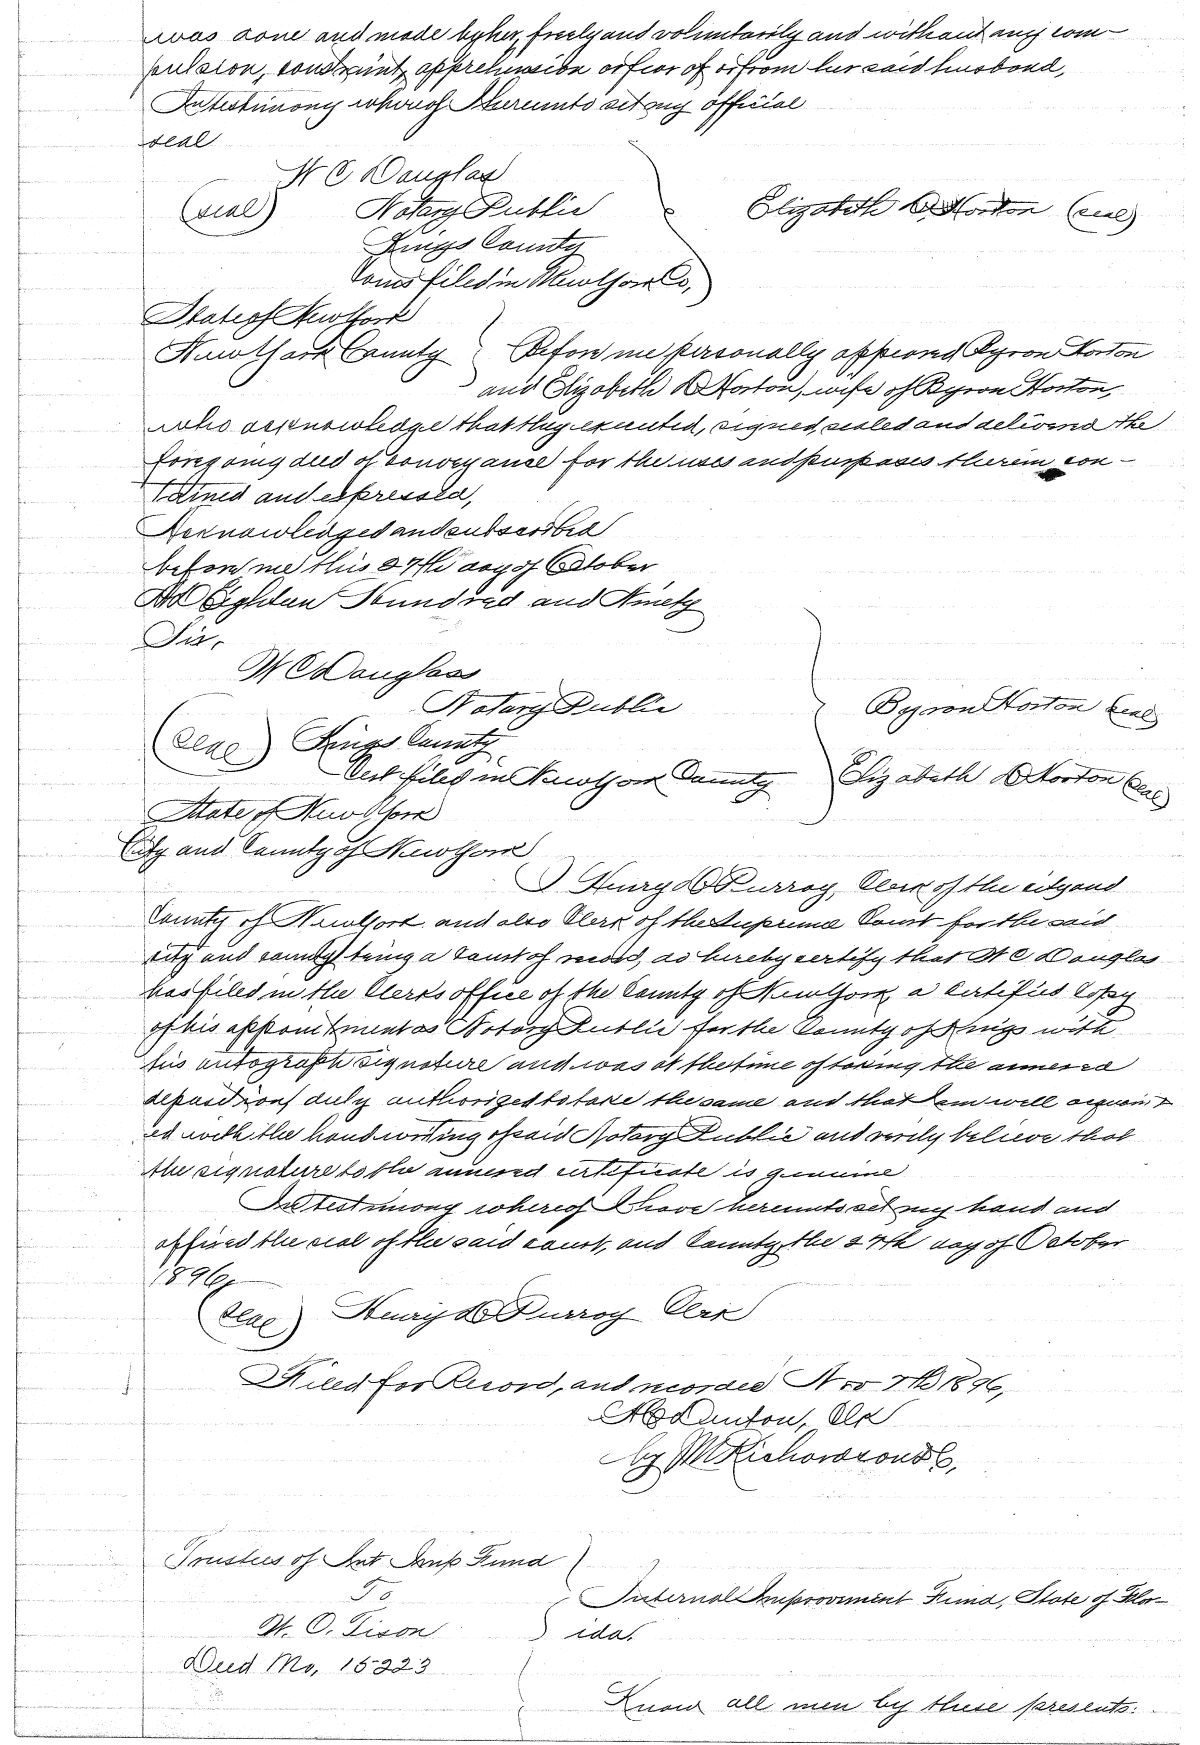 was done and made by her, freely and voluntarily and without any com-
pulsion, constraint, apprehension or fear of or from her said husband,
In testimony whereof I hereunto set my official
seal
W C Douglas
(seal) Notary Public Elizabeth D Horton (seal)
Kings County
filed in New York Co,
State of New York
New York County Before me personally appeared Byron Horton
and Elizabeth D Horton, wife of Byron Horton,
who acknowledge that they executed, signed, sealed and delivered the
foregoing deed of conveyance for the uses and purposes therein con-
tained and expressed,
Acknowledged and subscribed
before me this 27th day of October
AD Eighteen Hundred and Ninety
Six,
W C Douglass
Notary Public Byron Horton (seal)
(seal) Kings County
Cert filed in New York County Elizabeth D Horton (seal)
State of New York
City and County of New York
I Henry D Purroy, Clerk of the city and
County of New York and also Clerk of the Supreme Court for the said
city and county being a Court of record, do hereby certify that W C Douglas
has filed in the Clerks office of the County of New York, a certified Copy
of his appointment as Notary Public for the County of Kings with
his autograph signature and was at the time of taking the annexed
deposition duly authorized to take the same and that I am well acquaint
ed with the handwriting of said Notary Public and verily believe that
the signature to the annexed certificate is genuine
In testimony whereof I have hereunto set my hand and
affixed the seal of the said court, and County, the 27th day of October
1896
(seal) Henry D Purroy Clerk
Filed for Record, and recorded Nov 7th 1896,
Clk
by M Richardson D C,
Trustees of Int Imp Fund
To Internal Improvement Fund, State of Flor-
W. O. Tison ida.
Deed No. 15223
Know all men by these presents: